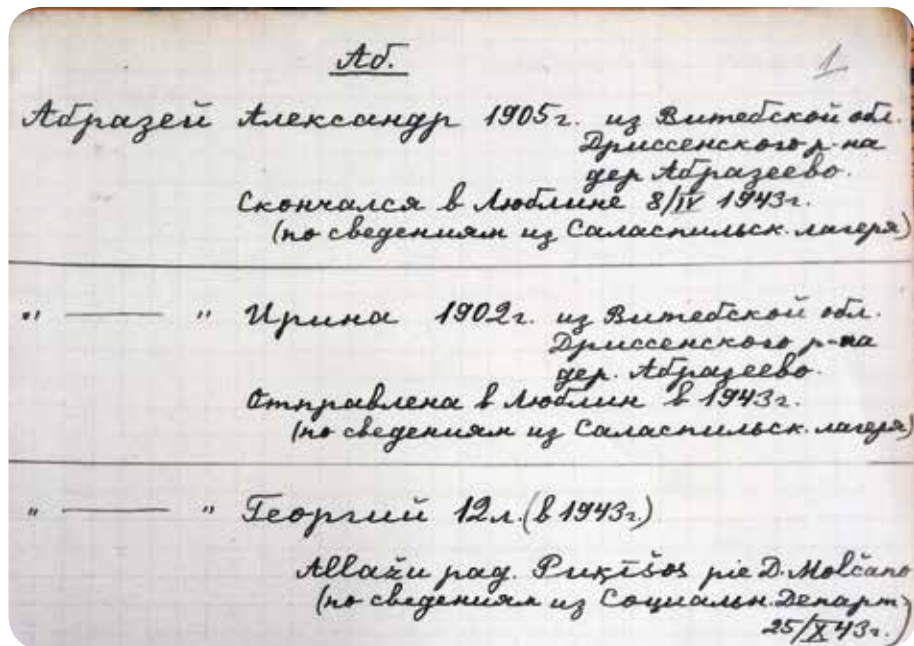 Аб.
1
Абразей Александр 1905г. из Витебской обл.
Дриссенского р-на
дер Абразеево.
Скончался в Люблине 8/IV 1943г.
(по сведениям из Саласпильск. лагеря)
" — " Ирина 1902г. из Витебской обл.
Дриссенского р-на
дер. Абразеево.
Отправлена в Люблин в 1943г.
(по сведениям из Саласпильск. лагеря)
" — " Георгий 12л. (в 1943г.)
Allažu pag. Puķīšos pie D. Molčano
(по сведениям из Социальн. Департ)
25/X 43г.